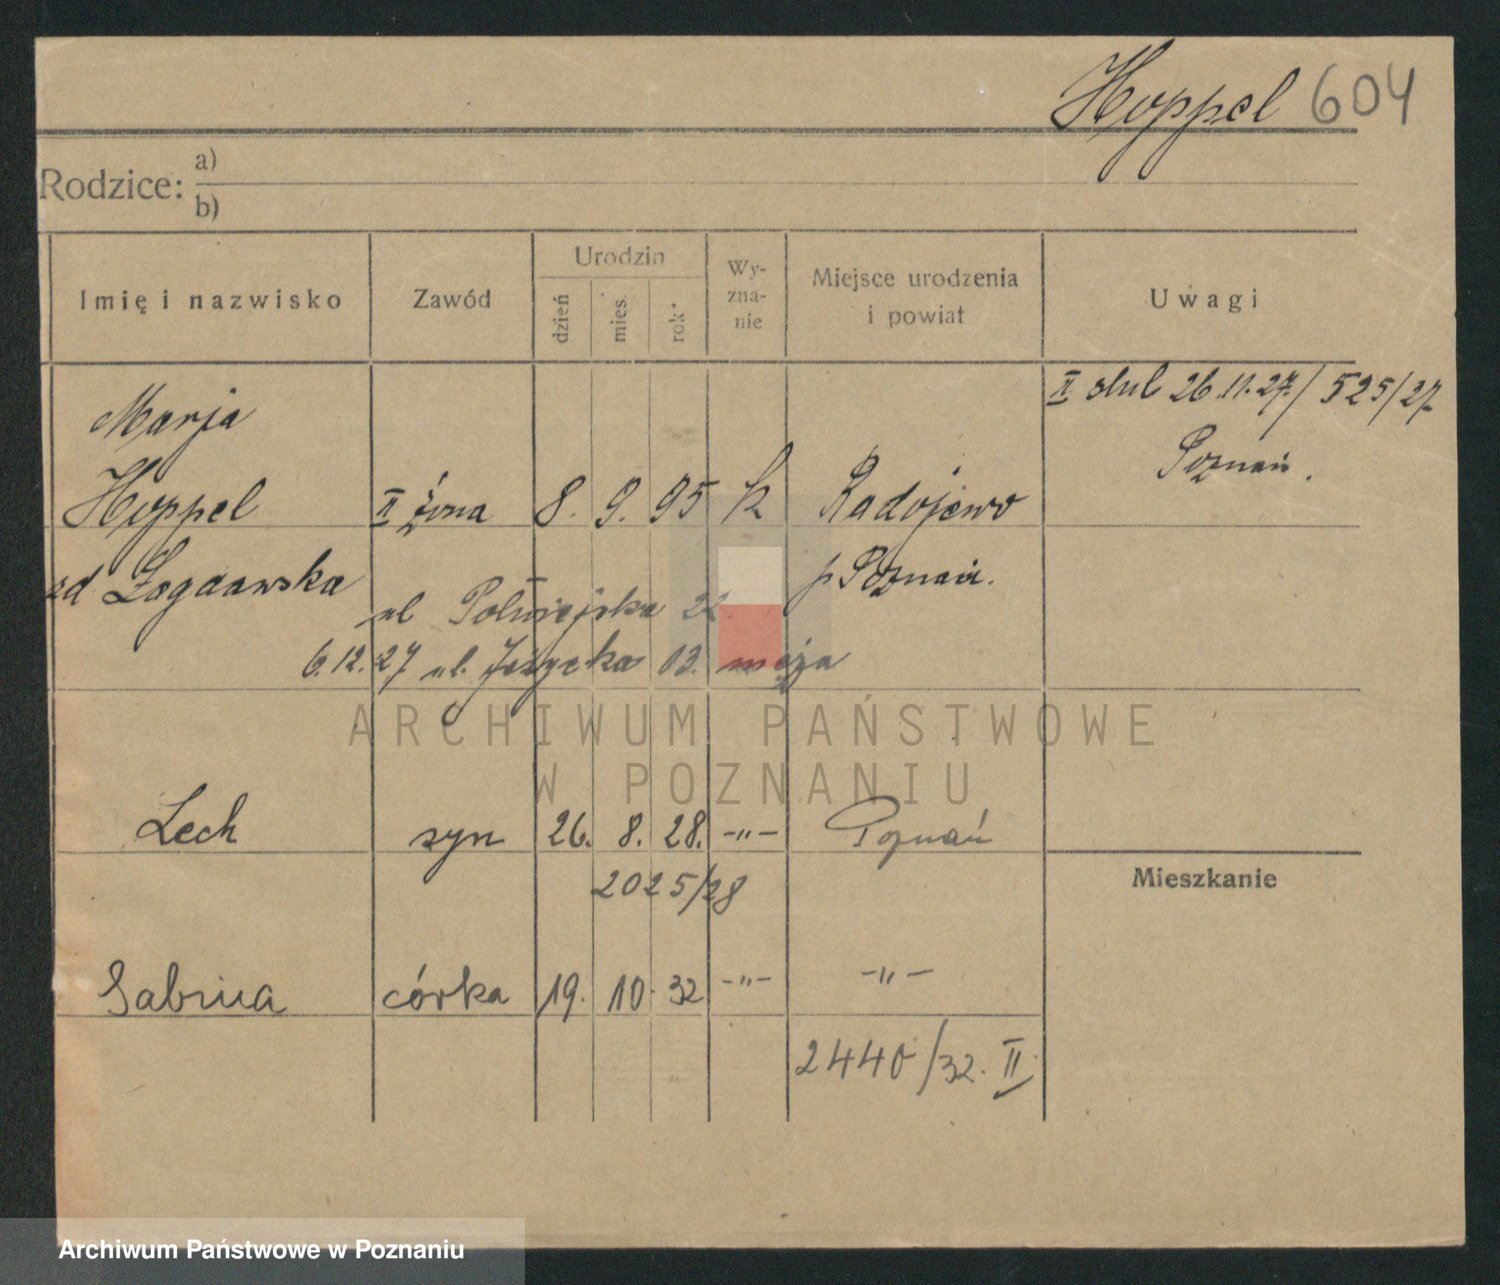 Hoppel 604
Rodzice: a)
b)
Imię i nazwisko
Zawód
Urodzin
dzień
mies.
rok
Wy-
zna-
nie
Miejsce urodzenia
i powiat
Uwagi
II ślub 26.11.27./525/27
Poznań.
Marja
Hoppel II żona 8. 9. 95 k Radojewo
zd
p Poznań.
ul Półwiejska 22.
6.12.27 ul. Jeżycka 13. męża
ARCHIWUM PAŃSTWOWE
W POZNANIU
Lech syn 26. 8. 28. -"- Poznań
2025/28
Mieszkanie
Sabina córka 19. 10. 32 -"- -"-
2440/32. II
Archiwum Państwowe w Poznaniu